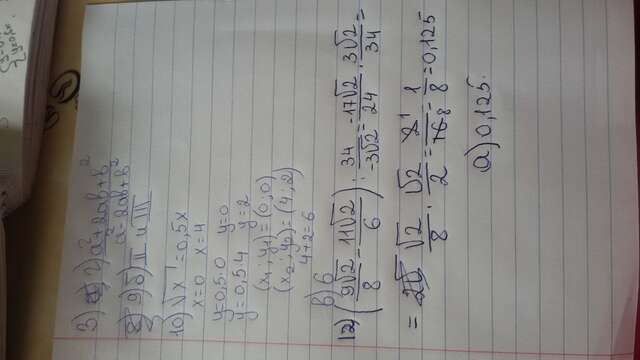 3) 2) a²+2ab+b²
a²-2ab+b²
9) б) II и III
10) √x = 0,5x
x=0 x=4
y=0,5·0 y=0
y=0,5·4 y=2
(x₁; y₁) = (0; 0)
(x₂; y₂) = (4; 2)
4+2=6
в) 6
12) (9√2/8 - 11√2/6) : 34/-3√2 = -17√2/24 · 3√2/34 =
= √2/8 · √2/2 = 2/16 = 1/8 = 0,125
а) 0,125.